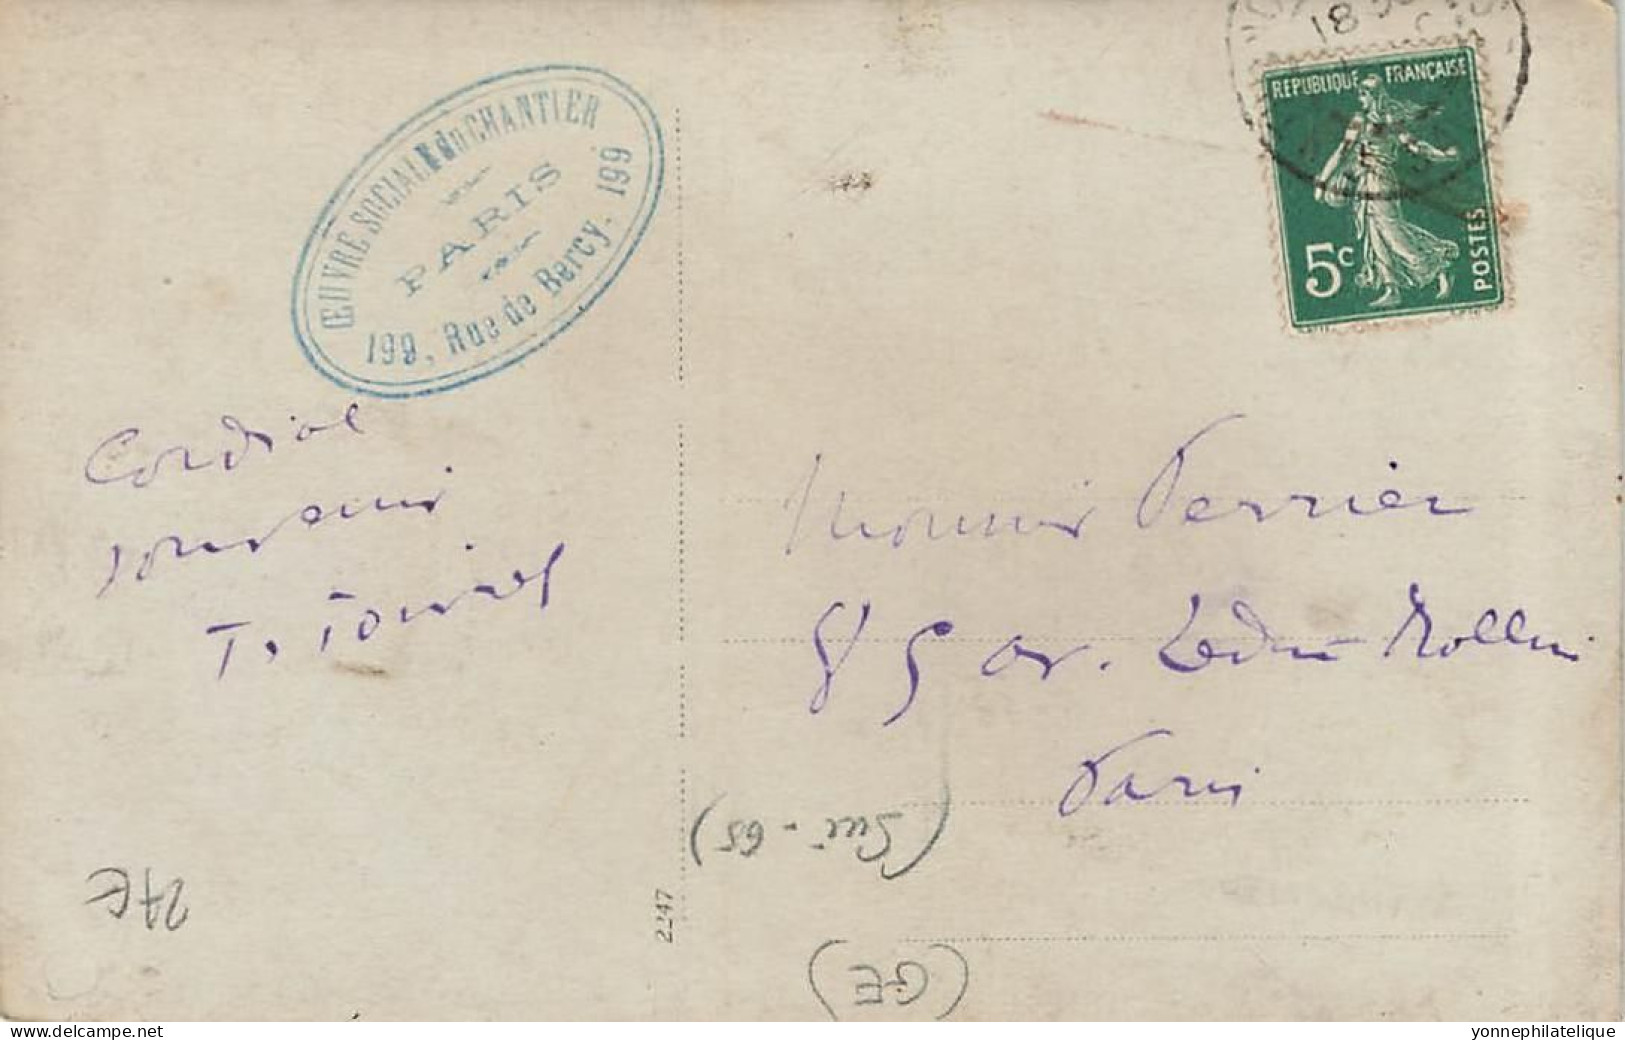 ŒUVRE SOCIALE du CHANTIER
PARIS
199, Rue de Bercy, 199
RÉPUBLIQUE FRANÇAISE
5c
POSTES
18
Cordial
souvenir
Monsieur Perrier
85 av. Ledru Rollin
Paris
(Sui - 65)
2247
27€
(GE)
delcampe.net
yonnephilatelique